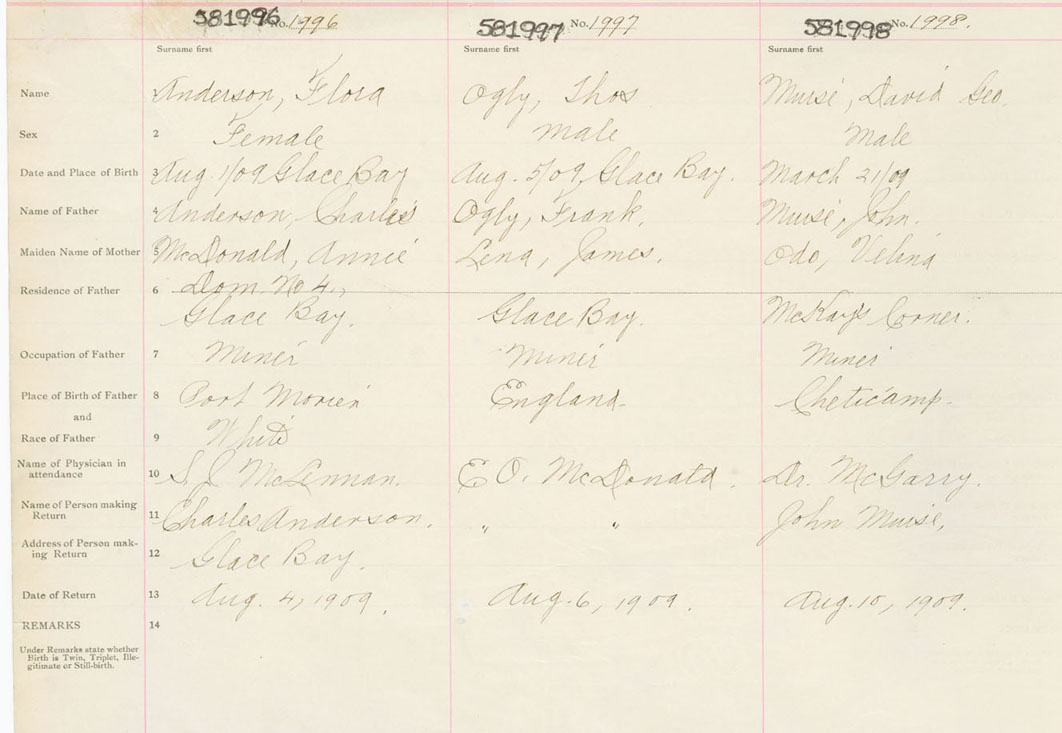 581996 No. 1996 581997 No. 1997 581998 No. 1998.
Surname first Surname first Surname first
Name Anderson, Flora Ogly, Thos Muise, David Geo.
Sex 2 Female Male Male
Date and Place of Birth 3 Aug. 1/09 Glace Bay Aug. 5/09, Glace Bay. March 21/09
Name of Father 4 Anderson, Charles Ogly, Frank. Muise, John.
Maiden Name of Mother 5 McDonald, Annie Lena, James. Odo, Velina
Residence of Father 6 Dom. No 4.,
Glace Bay. Glace Bay. McKay's Corner.
Occupation of Father 7 Miner Miner Miner
Place of Birth of Father 8 Port Morien England. Cheticamp.
and
Race of Father 9 White
Name of Physician in
attendance 10 S. J. McLennan. E O. McDonald. Dr. McGarry.
Name of Person making
Return 11 Charles Anderson. " " John Muise,
Address of Person mak-
ing Return 12 Glace Bay.
Date of Return 13 Aug. 4, 1909. Aug. 6, 1909. Aug. 10, 1909.
REMARKS 14
Under Remarks state whether
Birth is Twin, Triplet, Ille-
gitimate or Still-birth.